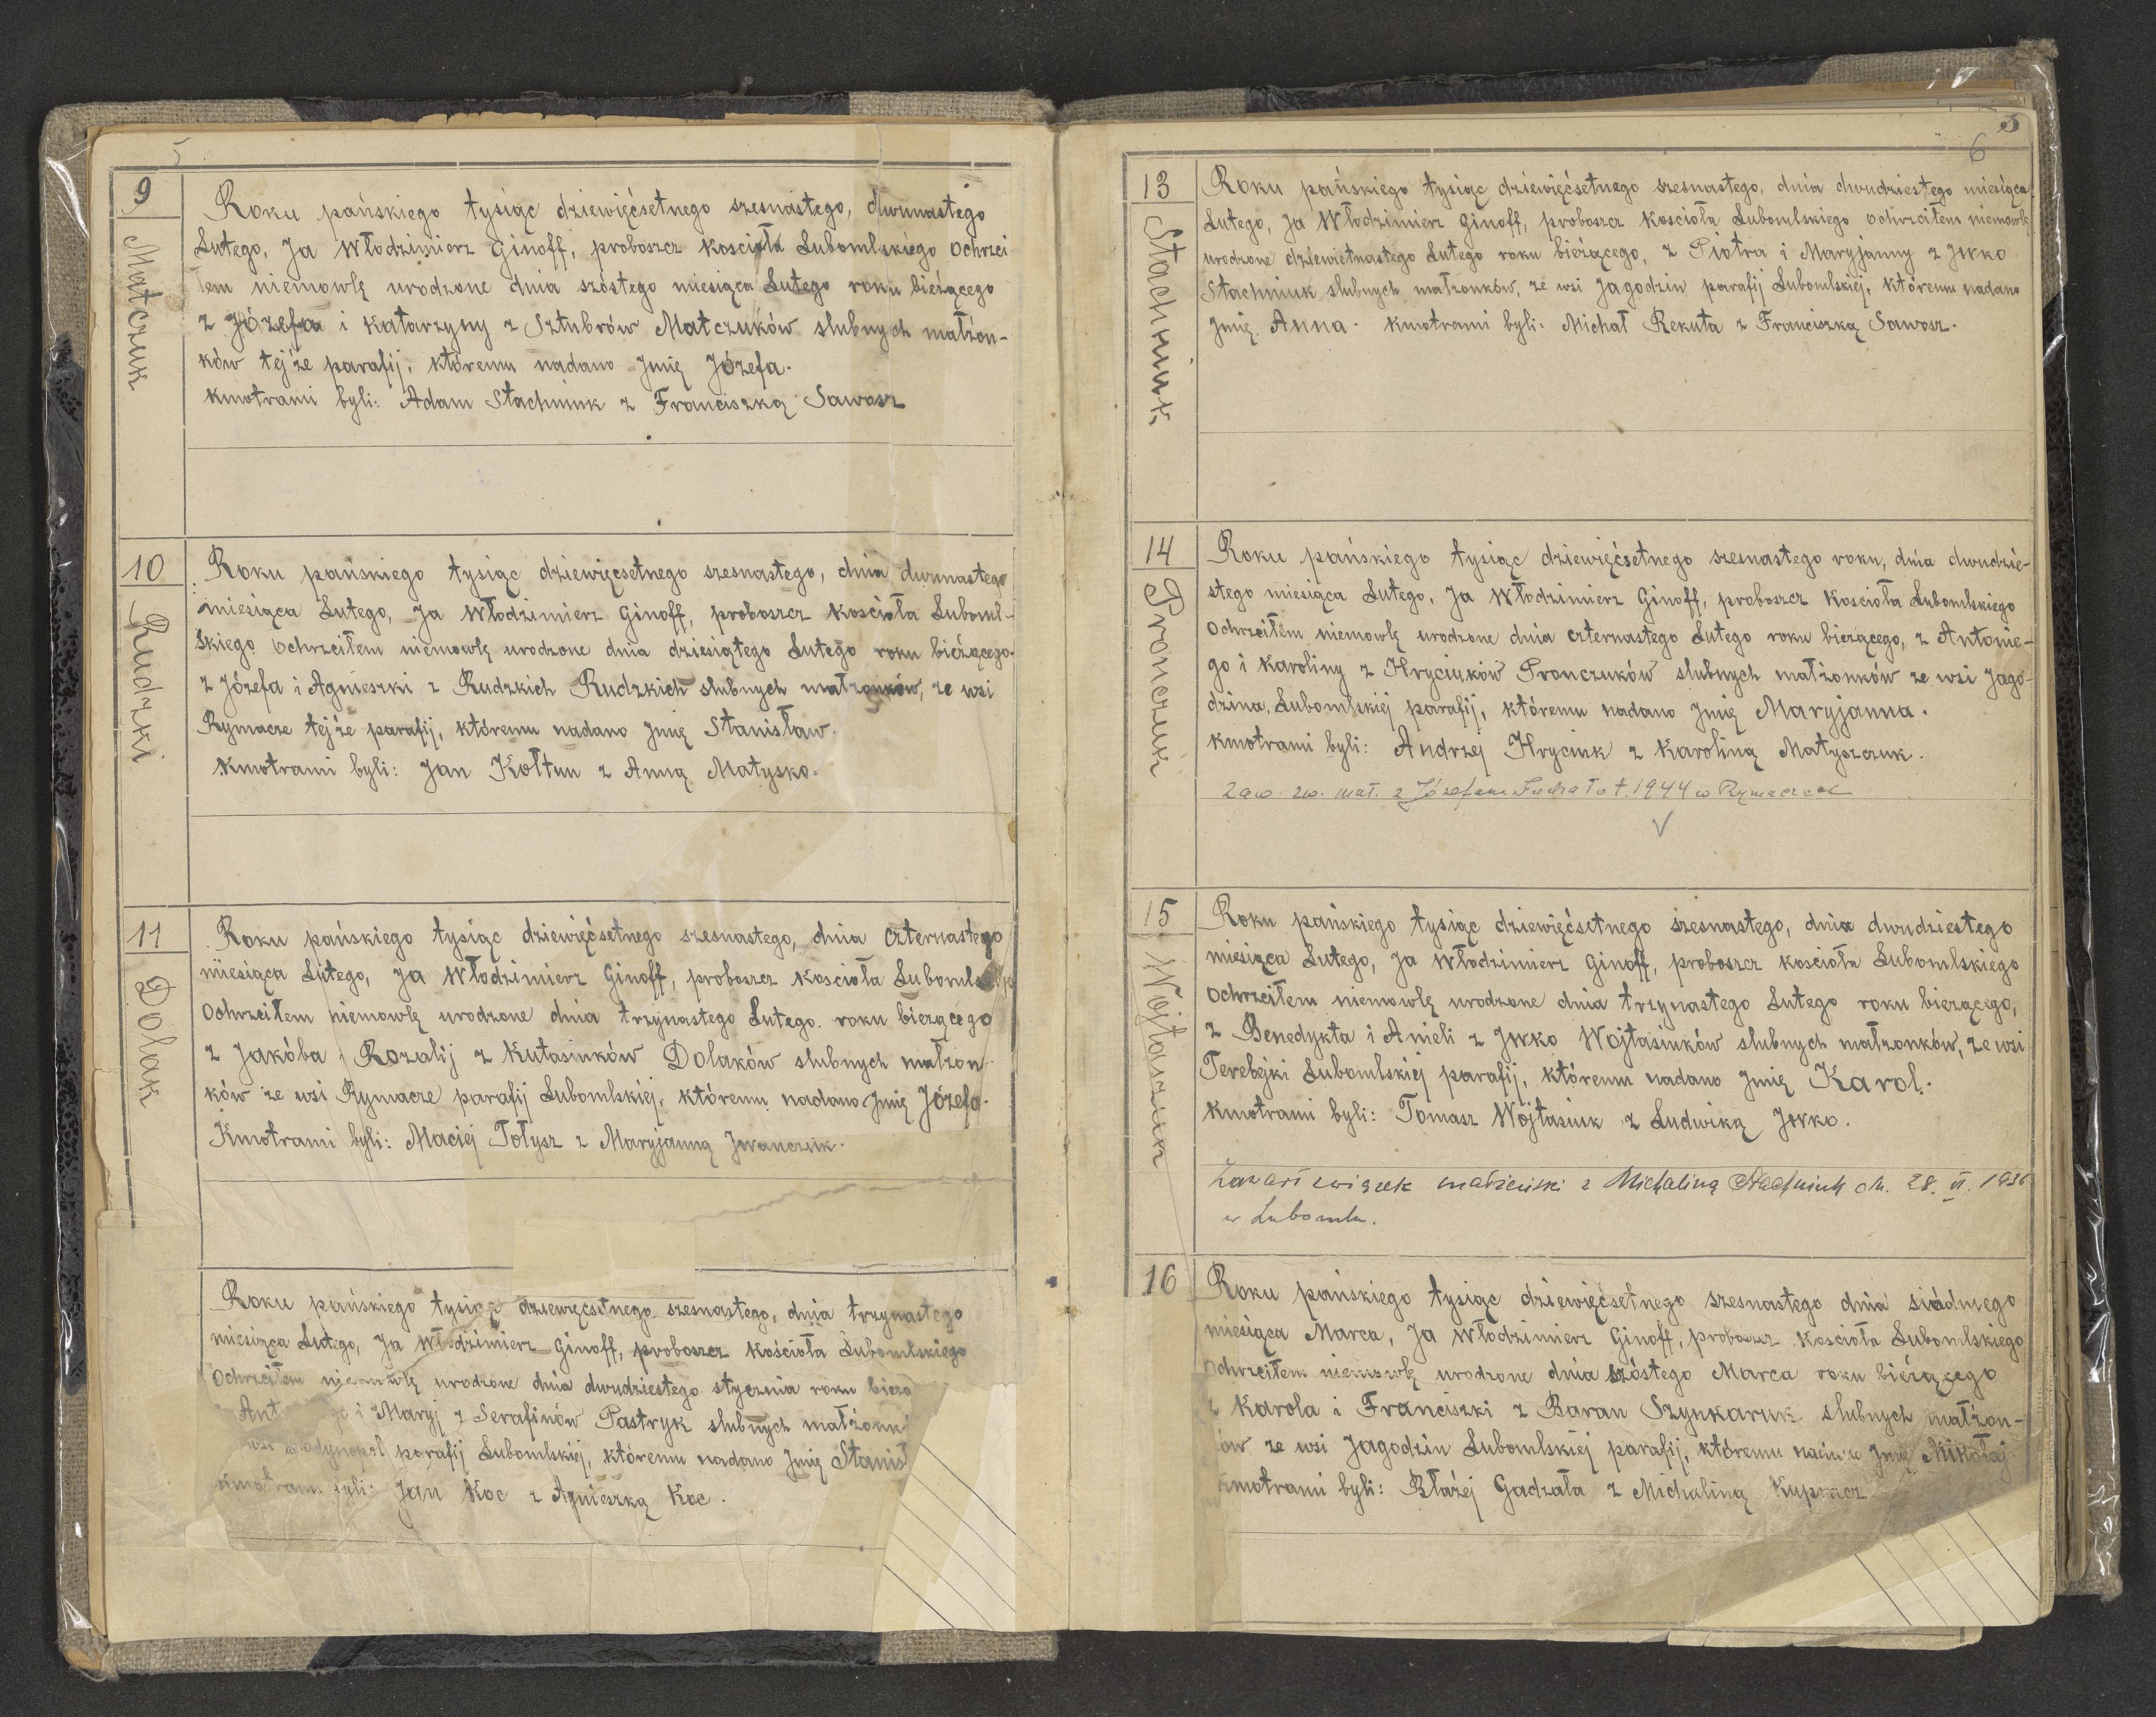 5
9
Matczuk
Roku pańskiego tysiąc dziewięćsetnego szesnastego, dwunastego
Lutego, Ja Włodzimierz Ginoff, proboszcz Kościoła Lubomlskiego Ochrzci
łem niemowlę urodzone dnia szóstego miesiąca Lutego roku bieżącego
z Józefa i Katarzyny z Sztubrów Matczuków slubnych małżon-
ków tejże parafij, któremu nadano Jmię Józefa.
Kmotrami byli: Adam Stachniuk z Franciszką Sawosz
10
Rudzki
Roku pańskiego tysiąc dziewięcsetnego szesnastego, dnia dwunastego
miesiąca Lutego, Ja Włodzimierz Ginoff, proboszcz Kościoła Luboml-
skiego Ochrzciłem niemowlę urodzone dnia dziesiątego Lutego roku bieżącego.
z Józefa i Agnieszki z Rudzkich Rudzkich slubnych małzonków, ze wsi
Rymacze tejże parafij, któremu nadano Jmię Stanisław.
Kmotrami byli: Jan Kołtun z Anną Matysko.
11
Dolak
Roku pańskiego tysiąc dziewięćsetnego szesnastego, dnia Czternastego
miesiąca Lutego, Ja Włodzimierz Ginoff, proboszcz Kościoła
Ochrzciłem niemowlę urodzone dnia trzynastego Lutego. roku bieżącego
z Jakóba i Rozalij z Kutasiuków Dolaków slubnych małzon
ków ze wsi Rymacze parafij Lubomlskiéj, któremu nadano Jmię Józefa.
Kmotrami byli: Maciej Tołysz z Maryjanną Jwanczuk.
Roku pańskiego tysiąc dziewięcsetnego szesnastego, dnia trzynastego
miesiąca Lutego, Ja Włodzimierz Ginoff, proboszcz Kościoła Lubomlskiego
Ochrzciłem niemowlę urodzone dnia dwudziestego stycznia roku bieżą
Ant i Maryj z Serafinów Pastryk slubnych małżonk
wsi parafij Lubomlskiej, któremu nadano Jmię Stanis
Kmotrami byli: Jan Koc z Agnieszką Koc.
3
6
13
Stachniuk
Roku pańskiego tysiąc dziewięćsetnego szesnastego, dnia dwudziestego miesiąca
Lutego, Ja Włodzimierz Ginoff, proboszcz Kościoła Lubomlskiego Ochrzciłem niemowlę
urodzone dziewietnastego Lutego roku bieżącego, z Piotra i Maryjanny z Jwko
Stachniuk slubnych małzonków, ze wsi Jagodzin parafij Lubomlskiej, któremu nadano
Jmię Anna. Kmotrami byli: Michał Rekuta z Franciszką Sawosz.
14
Pronczuk
Roku pańskiego tysiąc dziewięćsetnego szesnastego roku, dnia dwudzie-
stego miesiąca Lutego, Ja Włodzimierz Ginoff, proboszcz Kościoła Lubomlskiego
Ochrzciłem niemowlę urodzone dnia czternastego Lutego roku bieżącego, z Antonie-
go i Karoliny z Hryciuków Pronczuków slubnych małzonków ze wsi Jago-
dzina, Lubomlskiéj parafij, któremu nadano Jmię Maryjanna.
Kmotrami byli: Andrzej Hryciuk z Karoliną Matyszczuk.
zaw. zw. mał. z Józefem 1944 w Rymaczach
15
Wojtaszuk
Roku pańskiego tysiąc dziewięćsetnego szesnastego, dnia dwudziestego
miesiąca Lutego, Ja Włodzimierz Ginoff, proboszcz Kościoła Lubomlskiego
Ochrzciłem niemowlę urodzone dnia trzynastego Lutego roku bieżącego,
z Benedykta i Anieli z Jwko Wojtasiuków slubnych małzonków, ze wsi
Terebejki Lubomlskiéj parafij, któremu nadano Jmię Karol.
Kmotrami byli: Tomasz Wojtasiuk z Ludwiką Jwko.
Zawarł związek małżeński z Michaliną Stachniuk dn. 28. VI. 1936
w Lubomlu.
16
Roku pańskiego tysiąc dziewięćsetnego szesnastego dnia siódmego
miesiąca Marca, Ja Włodzimierz Ginoff, proboszcz Kościoła Lubomlskiego
Ochrzciłem niemowlę urodzone dnia szóstego Marca roku bieżącego
z Karola i Franciszki z Baran Szynkaruk slubnych małżon-
ków ze wsi Jagodzin Lubomlskiej parafij, któremu nadano Jmię Mikołaj
Kmotrami byli: Błażéj Gadzała z Michaliną Kupracz